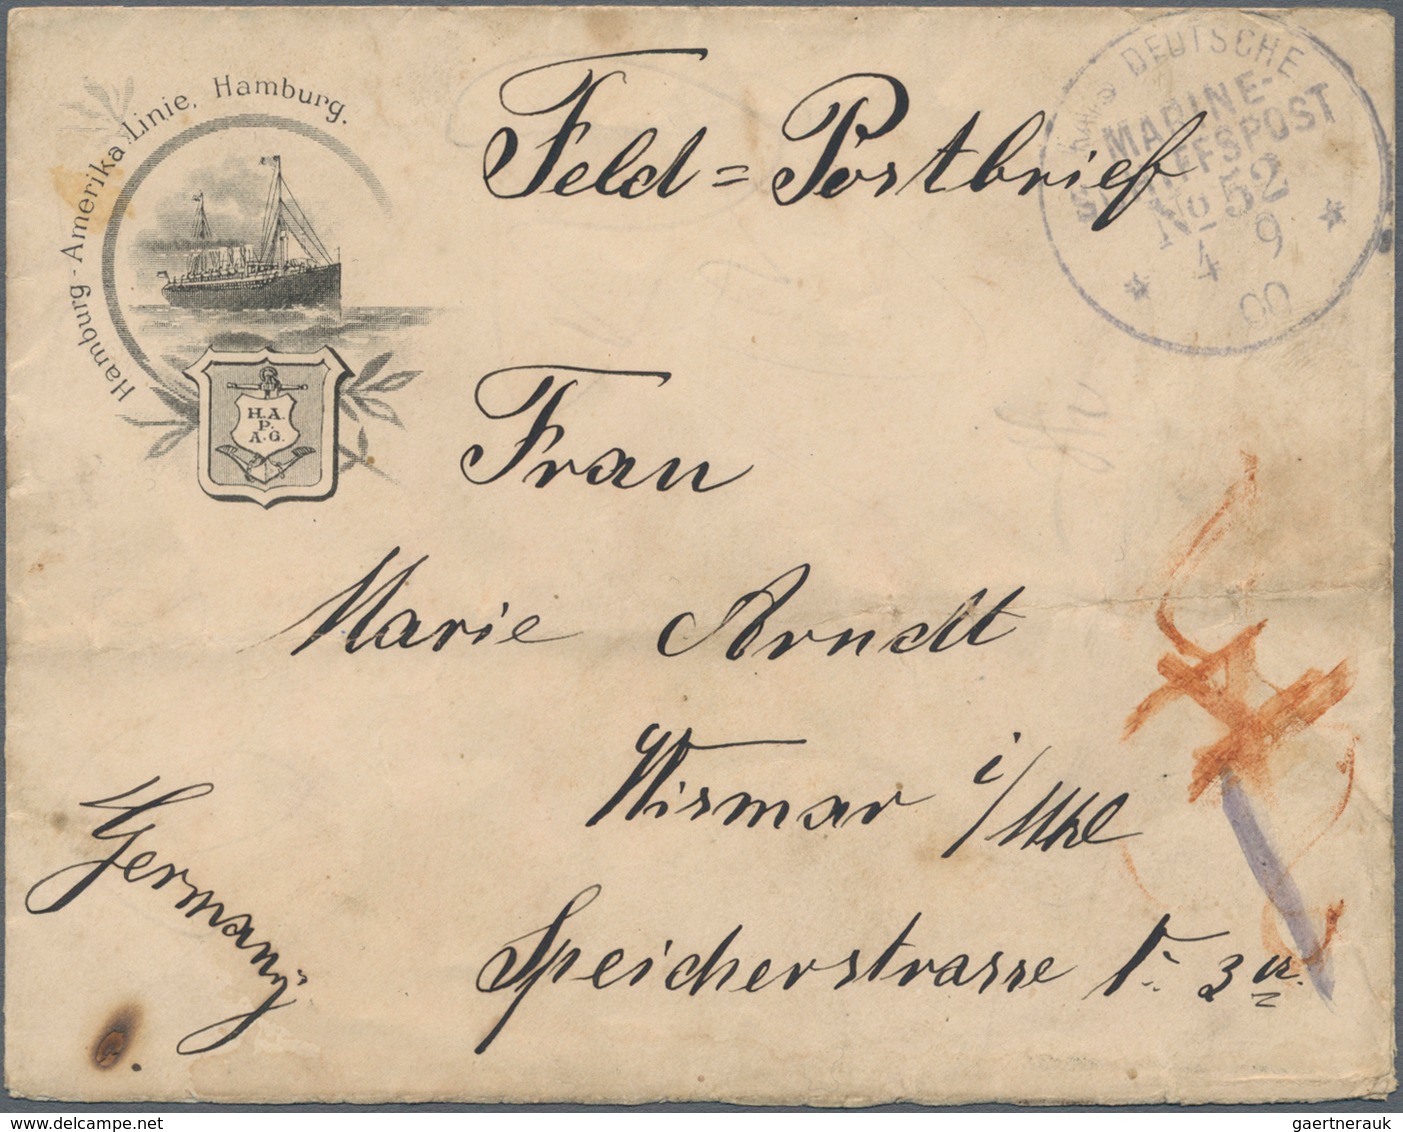 Hamburg-Amerika Linie, Hamburg.
H.A.
P.
A.G.
DEUTSCHE
MARINE-
SCHIFFSPOST
No 52
4 9
00
Feld=Postbrief
Frau
Marie Arndt
Wismar i/Mkl
Speicherstrasse 3
Germany
gaertnerauk